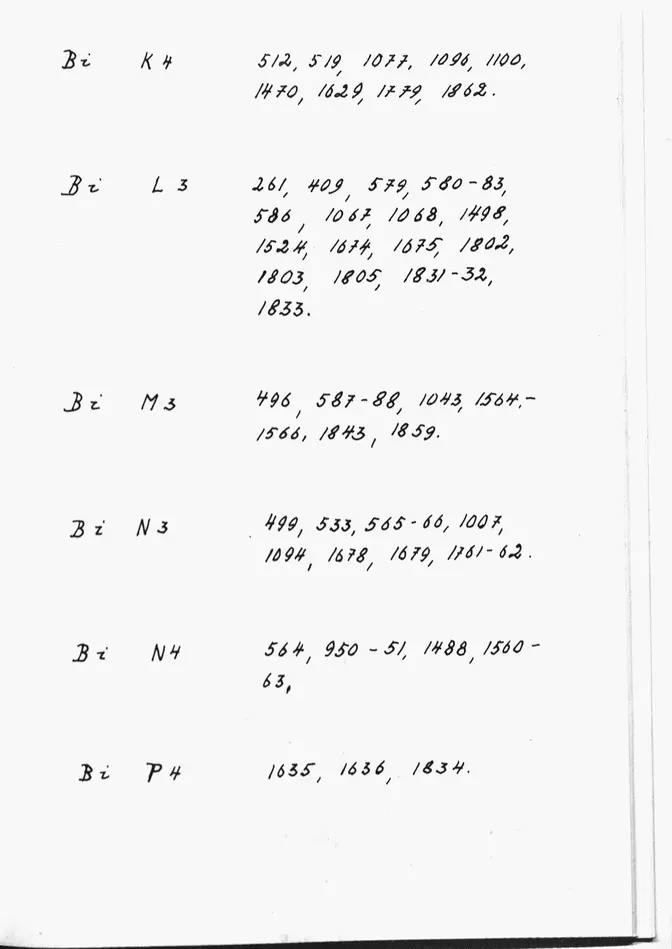 Bi K4 512, 519, 1077, 1096, 1100,
1470, 1629, 1779, 1862.
Bi L3 261, 409, 579, 580-83,
586, 1067, 1068, 1498,
1524, 1674, 1675, 1802,
1803, 1805, 1831-32,
1833.
Bi M3 496, 587-88, 1043, 1564.-
1566, 1843, 1859.
Bi N3 499, 533, 565-66, 1007,
1094, 1678, 1679, 1761-62.
Bi N4 564, 950-51, 1488, 1560-
63,
Bi P4 1635, 1636, 1834.